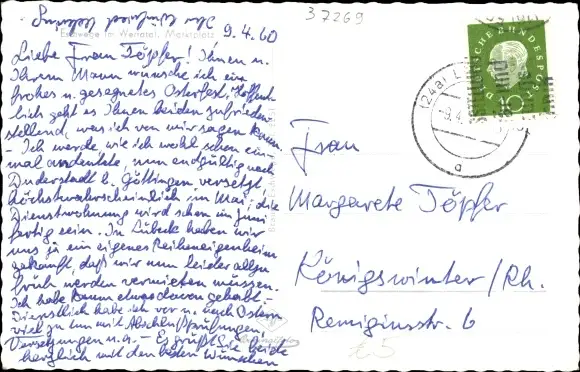 37269
9.4.60
Eschwege im Werratal, Marktplatz
Liebe Frau Töpfer! Ihnen u.
Ihrem Mann wünsche ich ein
frohes u. gesegnetes Osterfest. Hoffent-
lich geht es Ihnen beiden zufrieden-
stellend, was ich von mir sagen kann.
- Ich werde, wie ich wohl schon ein-
mal andeutete, nun endgültig nach
Duderstadt b. Göttingen versetzt,
höchstwahrscheinlich im Mai; die
Dienstwohnung wird schon im Juni
fertig sein. In Lübeck haben wir
uns ja ein eigenes Reiheneigenheim
gekauft, daß wir nun leider allzu
früh werden vermieten müssen.
Ich habe kaum etwas davon gehabt.-
Dienstlich habe ich vor u. nach Ostern
viel zu tun mit Abschlußprüfungen,
Versetzungen u.a. - Es grüßt Sie beide
herzlich mit den besten Wünschen
Ihr Winfried
DEUTSCHE BUNDESPOST
10
(24a) L
-9.4.
a
Frau
Margarete Töpfer
Königswinter/Rh.
Remigiusstr. 6